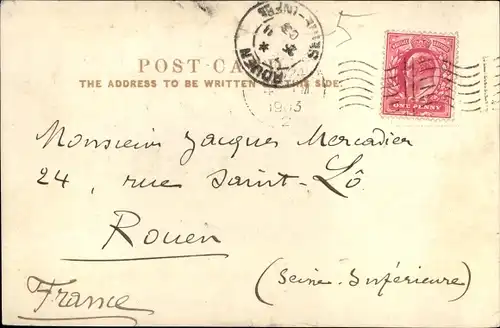 POST CA
THE ADDRESS TO BE WRITTEN THIS SIDE
ROUEN
SEINE-INFRE
1903
5
ONE PENNY
Monsieur Jacques Mercadier
24, rue Saint-Lô
Rouen
(Seine-Inférieure)
France